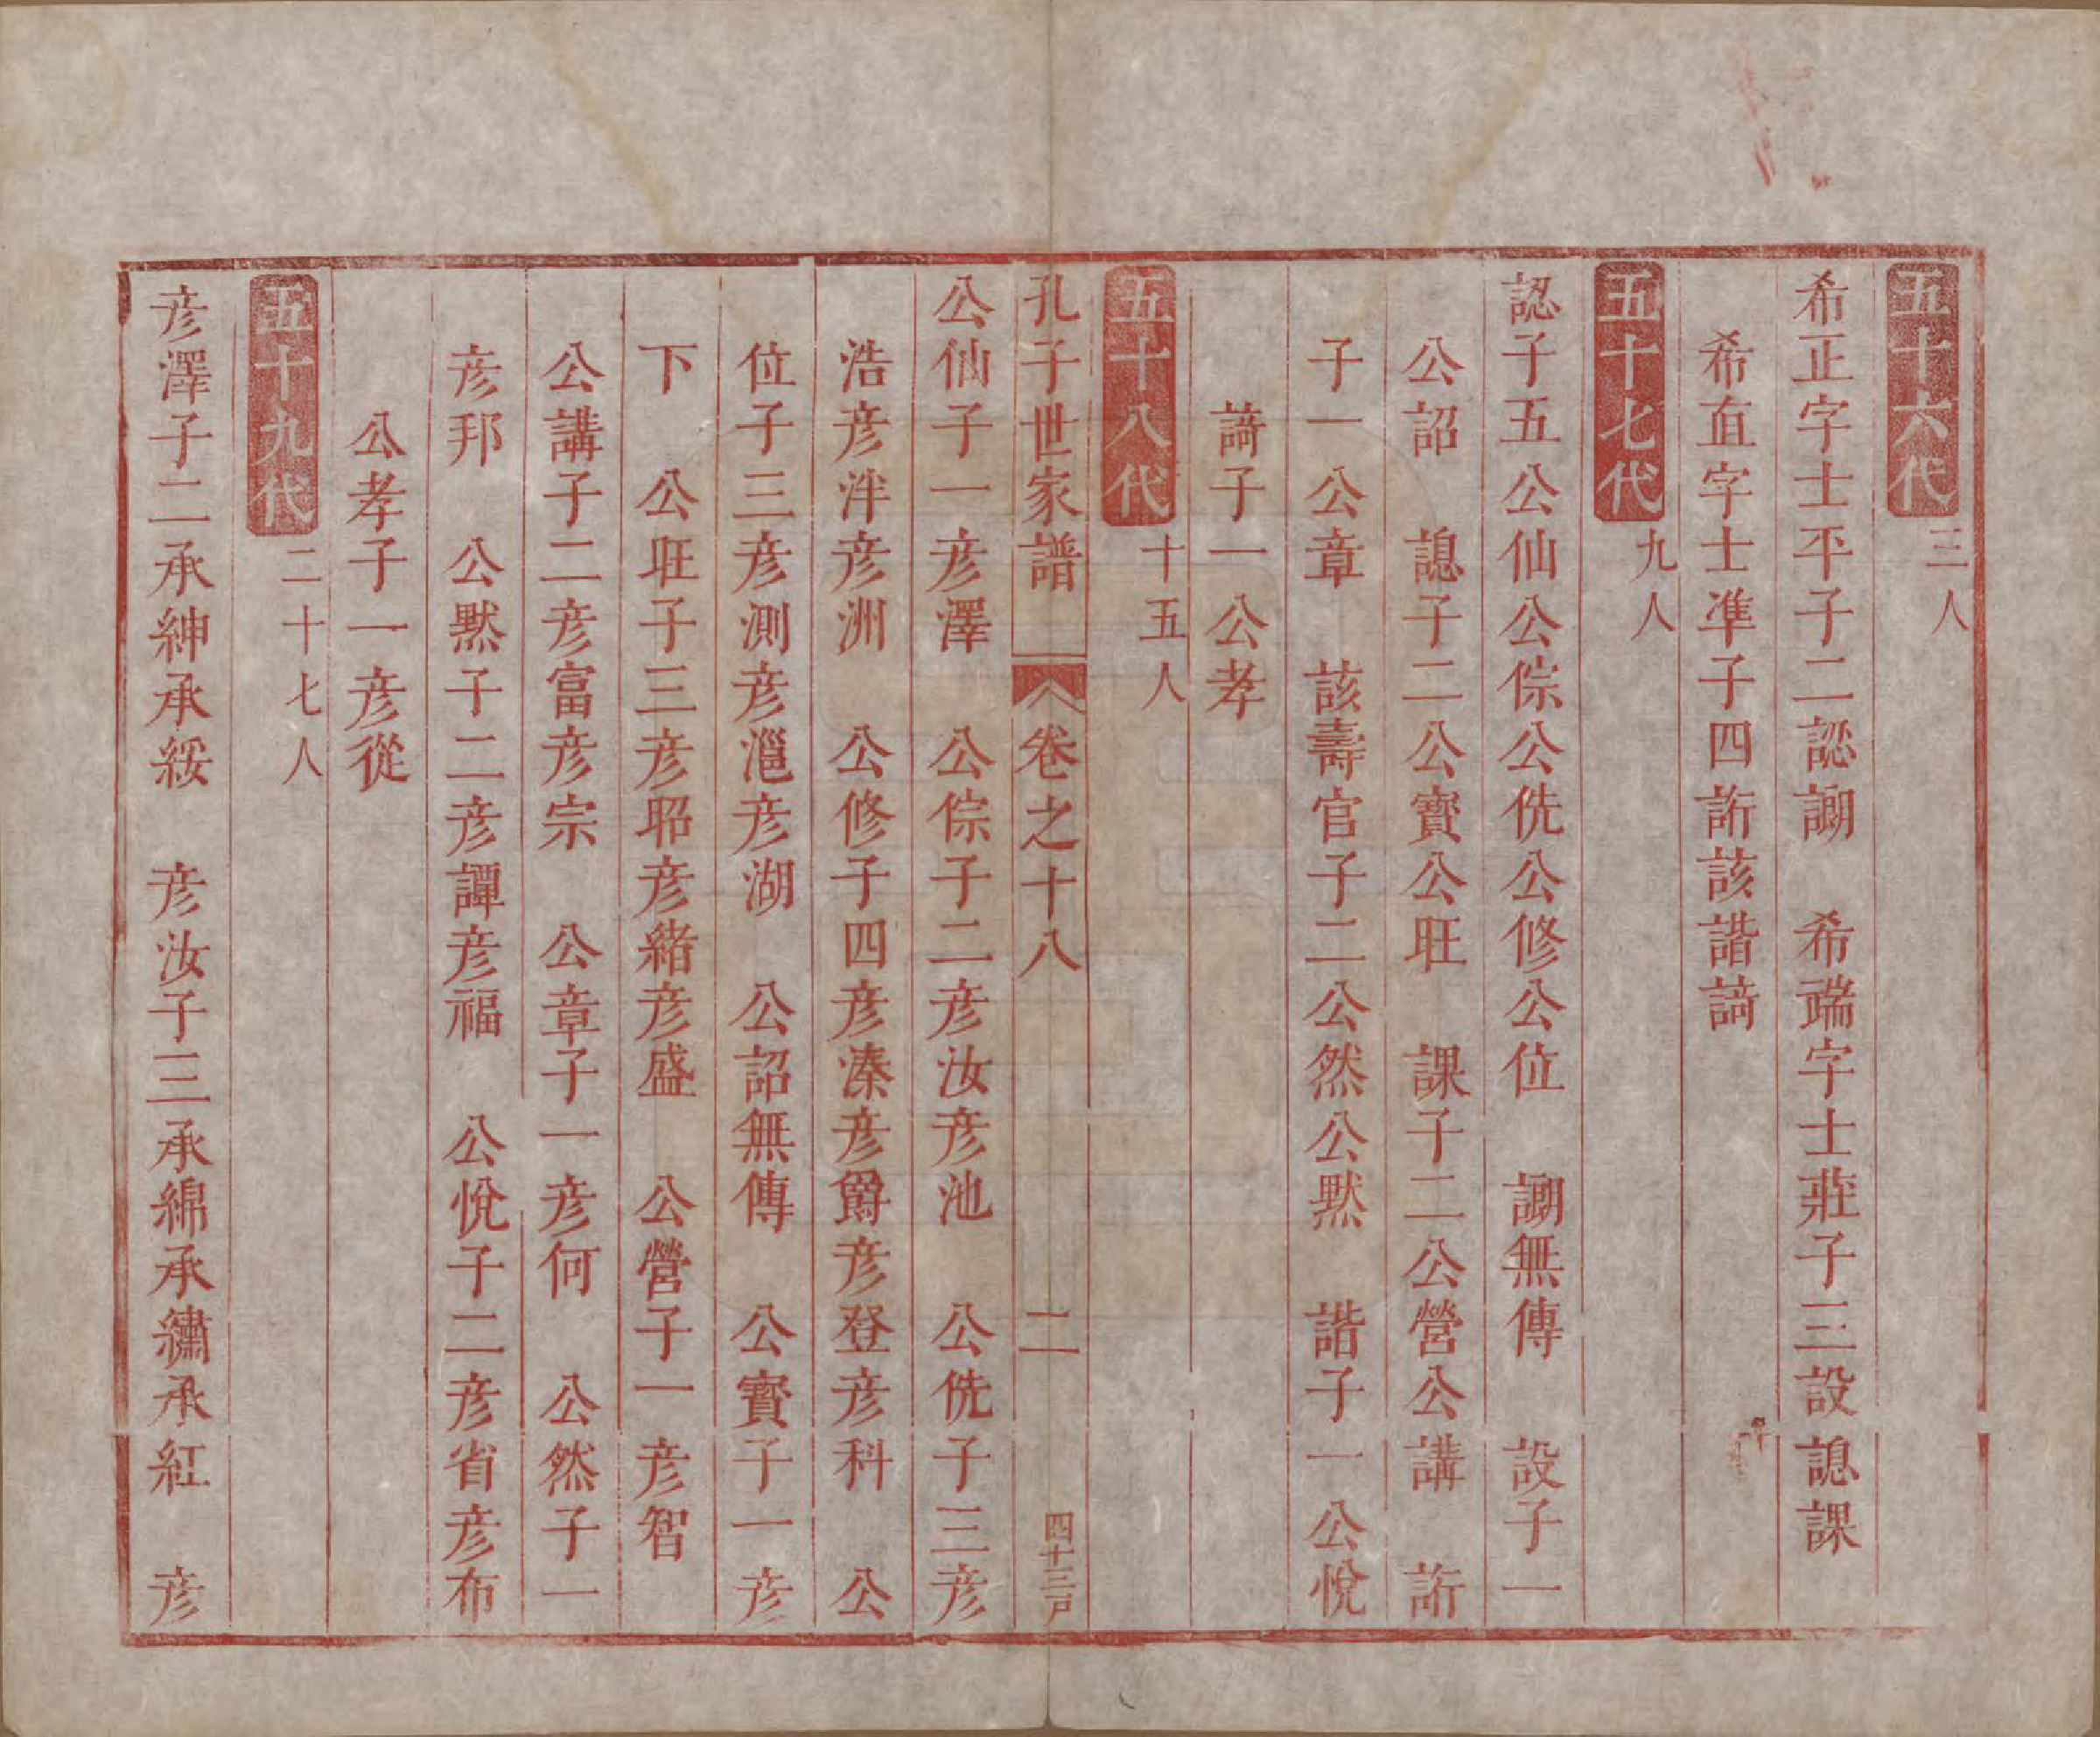 五十六代 三人
希正字士平子二認謝 希端字士莊子三設諰課
希直字士準子四訢該諧謞
五十七代 九人
認子五公仙公倧公侁公修公位 謝無傳 設子一
公詔 諰子二公實公旺 課子二公營公講 訢
子一公章 該壽官子二公然公默 諧子一公悅
謞子一公孝
五十八代 十五人
孔子世家譜 卷之十八 二 四十三戶
公仙子一彥澤 公倧子二彥汝彥池 公侁子三彥
浩彥泮彥洲 公修子四彥溱彥爵彥登彥科 公
位子三彥測彥滬彥湖 公詔無傳 公實子一彥
下 公旺子三彥昭彥緒彥盛 公營子一彥智
公講子二彥富彥宗 公章子一彥何 公然子一
彥邦 公默子二彥譚彥福 公悅子二彥省彥布
公孝子一彥從
五十九代 二十七人
彥澤子二承紳承綏 彥汝子三承綿承繡承紅 彥